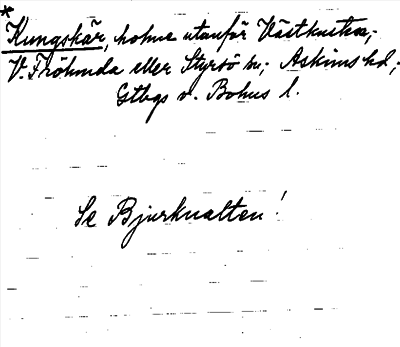 *
Kungskär, holme utanför Västkusten;
V. Frölunda eller Styrsö sn; Askims hd;
Gtbgs o. Bohus l.
Se Bjurknalten!